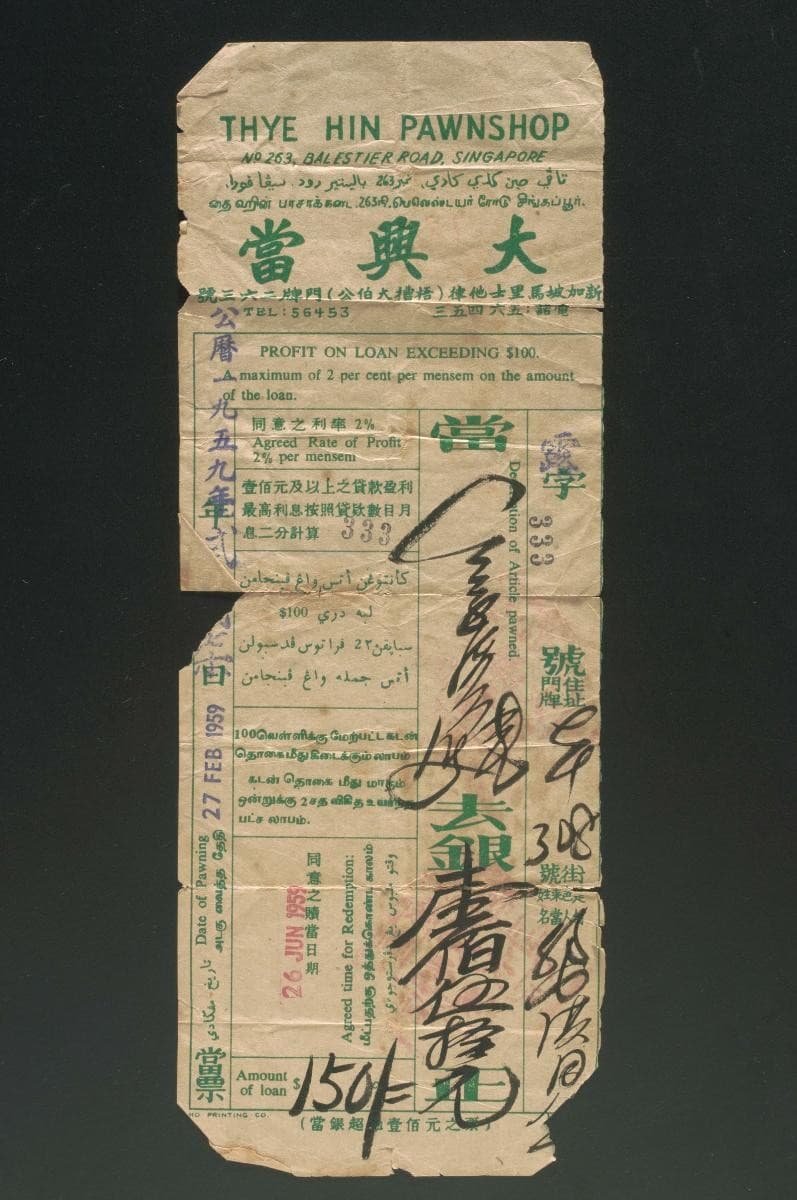 THYE HIN PAWNSHOP
NO 263, BALESTIER ROAD, SINGAPORE
تاڤي حين كدي ڬادي، نمبر 263 باليستير رود، سيڠاڤورا.
தை ஹின் பாசாக்கடை, 263நி, பெலெஸ்டயர் ரோடு சிங்கப்பூர்.
大興當
新加坡馬里士他律(梧槽大伯公)門牌二六三號
TEL: 56453
電話：五六四五三
PROFIT ON LOAN EXCEEDING $100.
A maximum of 2 per cent per mensem on the amount
of the loan.
當
Description of Article pawned.
字
333
號
住址
門牌
308
街
號
去
銀
壹佰伍拾元
同意之利率 2%
Agreed Rate of Profit
2% per mensem
壹佰元及以上之貸款盈利
最高利息按照貸款數目月
息二分計算
333
كأونتوڠن أتس واڠ ڤينجامن
لبه دري $100
سباڽقڽ ٢ ڤراتوس ڤد سبولن
أتس جمله واڠ ڤينجامن
100 வெள்ளிக்கு மேற்பட்ட கடன்
தொகை மீது கிடைக்கும் லாபம்
கடன் தொகை மீது மாதம்
ஒன்றுக்கு 2 சத விகித உயர்ந்த
பட்ச லாபம்.
同意之贖當日期
26 JUN 1959
Agreed time for Redemption:
மீட்பதற்கு ஒத்துக்கொண்ட காலம்
公曆一九五九年弍
年
日
27 FEB 1959
Date of Pawning
அடகு வைத்த தேதி
當票
Amount
of loan $
150/=
HO PRINTING CO.
(當銀超過壹佰元之票)